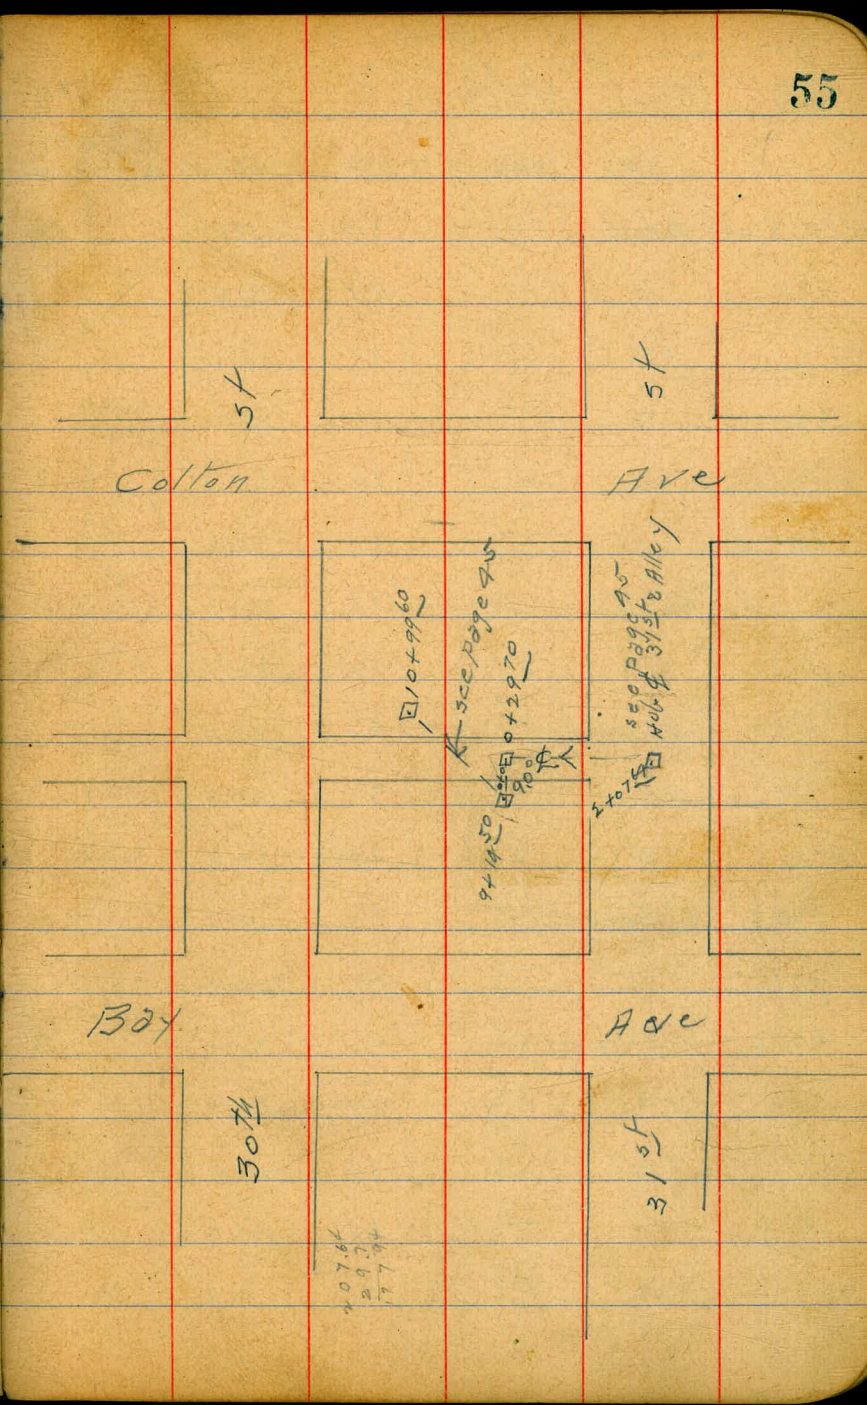 55
St
St
Colton Ave
10+99 60
see page 45
0+29 70
see page 45
Hub ¢ 31st & Alley
9+14 50
9.00
¢
2+07 64
Bay Ave
30th
31 st
207.64
29.7
177 94